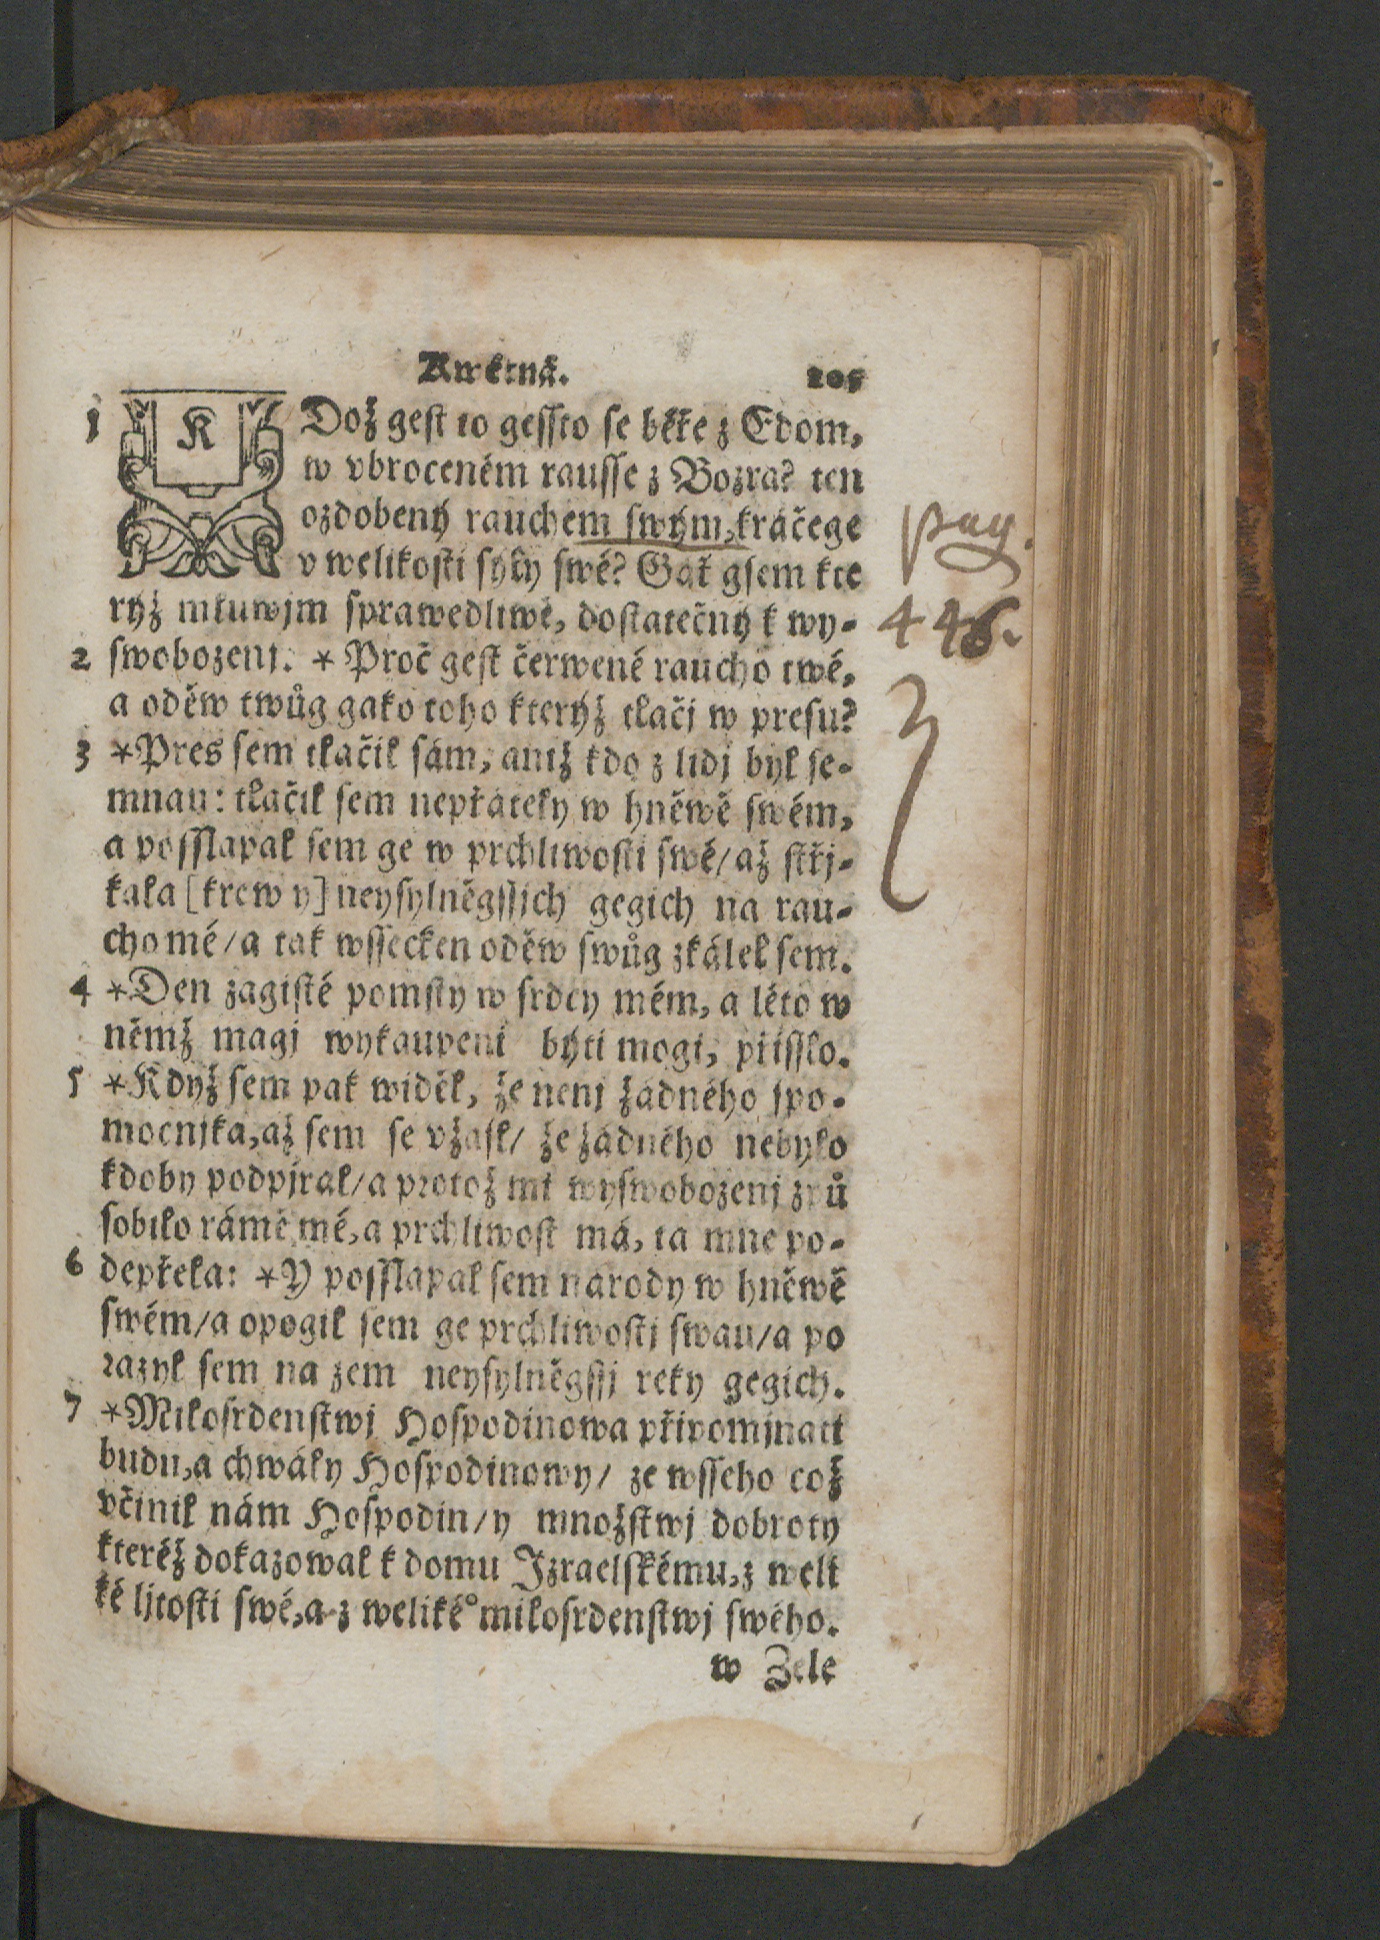 Kwětná. 205
1 KDož gest to gessto se běře z Edom,
w vbroceném rausse z Bozra? ten
ozdobený rauchem swým, kráčege
v welikosti syly swé? Gať gsem kte
rýž mluwjm sprawedliwě, dostatečný k wy-
2 swobozenj. * Proč gest čerwené raucho twé,
a oděw twůg gako toho kterýž tlačj w presu?
3 *Pres sem tlačil sám, aniž kdo z lidj byl se-
mnau: tlačil sem nepřátely w hněwě swém,
a possslapal sem ge w prchliwosti swé/až střj-
kala [krew y] neysylněgssjch gegich na rau-
cho mé/a tak wssecken oděw swůg zkálel sem.
4 *Den zagisté pomsty w srdcy mém, a léto w
němž magj wykaupeni býti mogi, přisslo.
5 *Když sem pak widěl, že nenj žádného spo-
mocnjka, až sem se vžasl/ že žádného nebylo
kdoby podpjral/a protož mi wyswobozenj způ
sobilo rámě mé, a prchliwost má, ta mne po-
6 depřela: *Y possslapal sem narody w hněwě
swém/a opogil sem ge prchliwostj swau/a po
razyl sem na zem neysylněgssj reky gegich.
7 *Milosrdenstwj Hospodinowa připomjnati
budu, a chwály Hospodinowy/ ze wsseho což
včinil nám Hospodin/y množstwj dobroty
kteréž dokazowal k domu Izraelskému, z weli
ké ljtosti swé, a z weliké° milosrdenstwj swého.
w Zele
pag.
446.